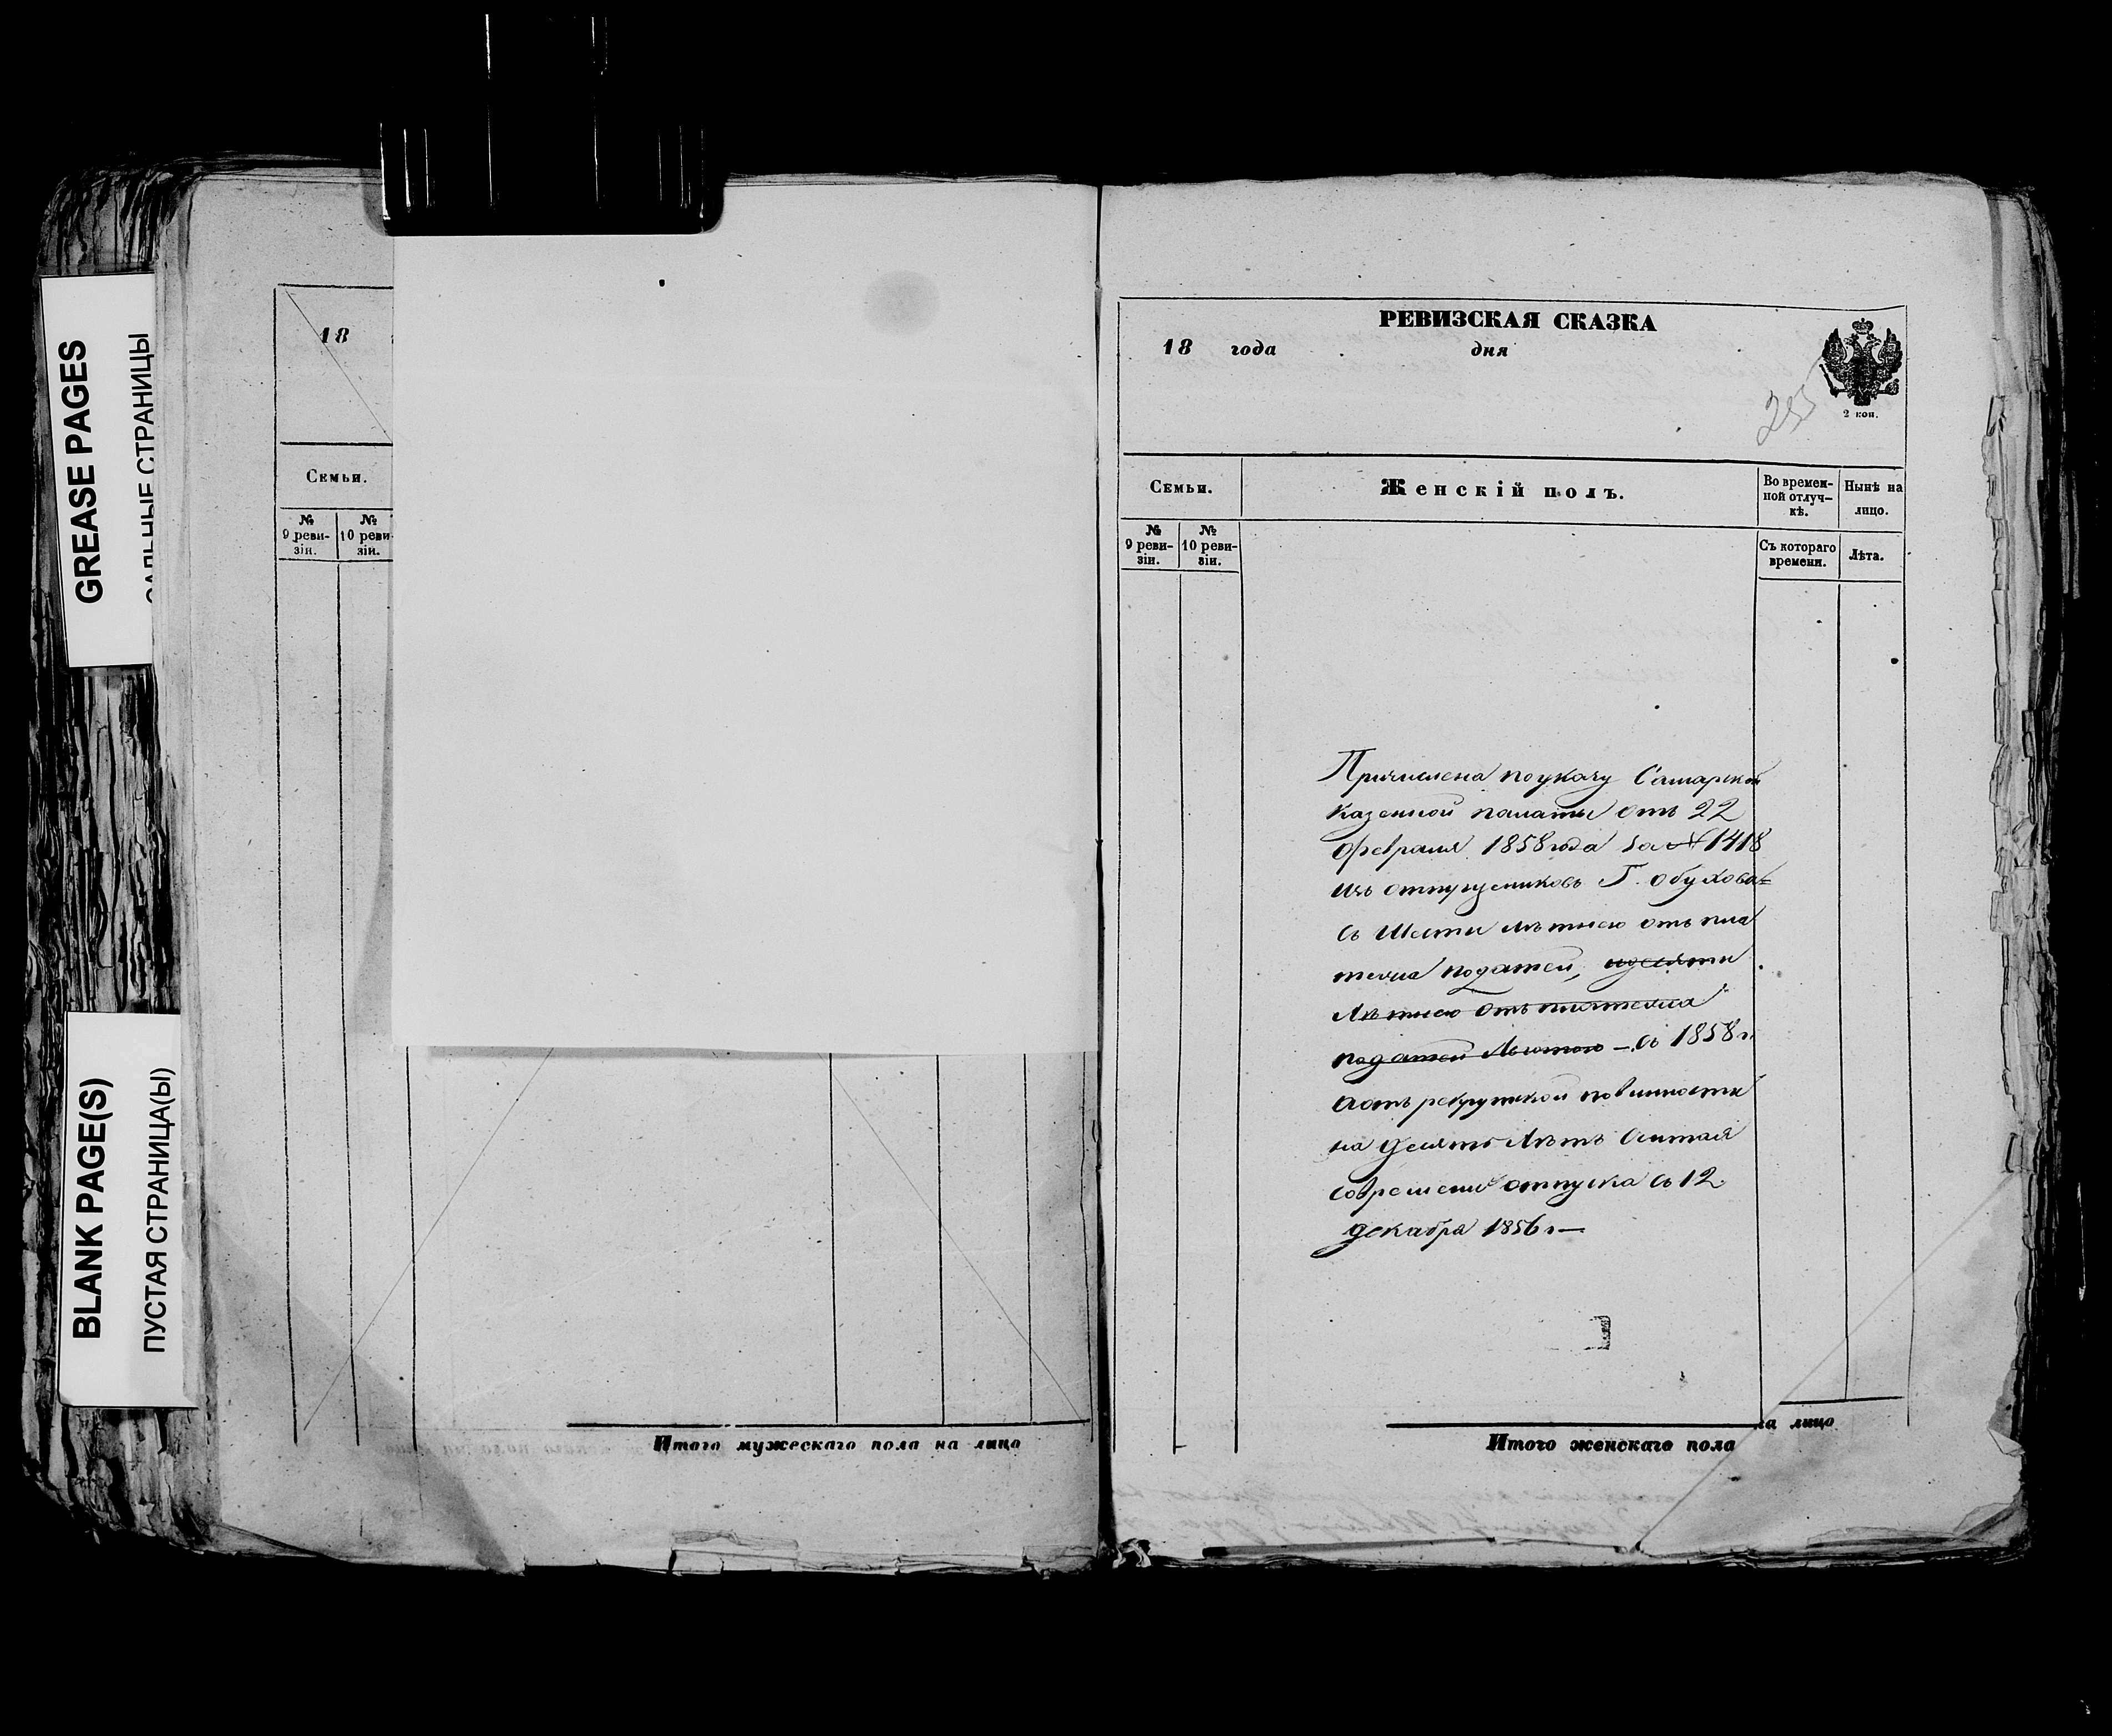 GREASE PAGES
САЛЬНЫЕ СТРАНИЦЫ
BLANK PAGE(S)
ПУСТАЯ СТРАНИЦА(Ы)
18
Семьи.
№ 9 реви-зіи.
№ 10 реви-зіи.
Итого мужескаго пола на лицо
РЕВИЗСКАЯ СКАЗКА
18 года дня
255
2 коп.
Семьи.
Женскій полъ.
Во времен-ной отлуч-кѣ.
Нынѣ на лицо.
№ 9 реви-зіи.
№ 10 реви-зіи.
Съ котораго времени.
Лѣта.
Причислена по указу Самарской
Казенной палаты отъ 22
февраля 1858 года за № 1418
изъ отпущенниковъ Г. Обухова
съ Шести лѣтнею отъ пла
тежа податей, и десяти
Лѣтнею отъ платежа
податей Льготою – съ 1858 г.
а отъ рекрутской повинности
на десять Лѣтъ Считая
со времени отпуска съ 12
декабря 1856 г –
Итого женскаго пола
на лицо